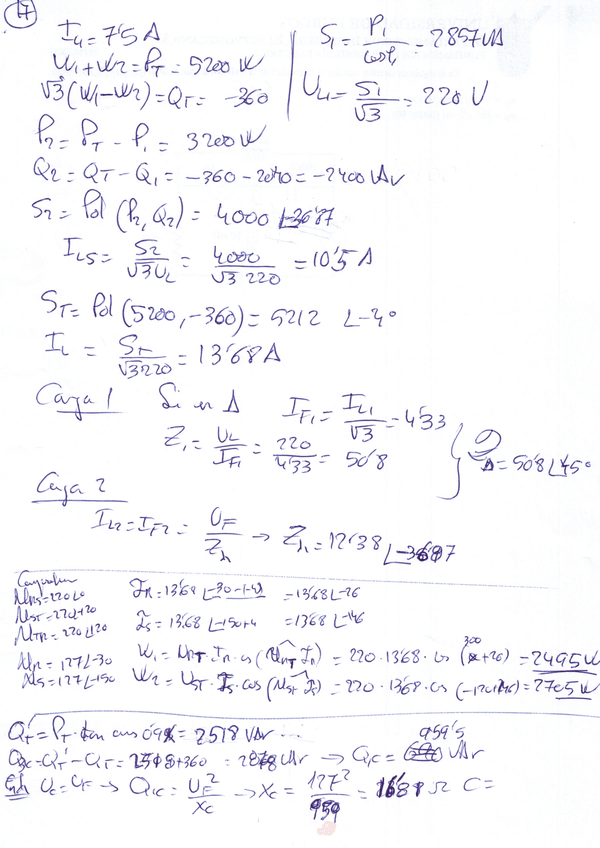 17
I_L1 = 7'5 A
W1 + W2 = P_T = 5200 W
√3 (W1 - W2) = Q_T = -360
S1 = P1/cosφ1 = 2857 VA
U_L1 = S1/√3 = 220 V
P2 = P_T - P1 = 3200 W
Q2 = Q_T - Q1 = -360 - 2040 = -2400 VAr
S2 = Pol (P2, Q2) = 4000 ∠-36'87
I_L2 = S2/√3 U_L = 4000/√3 220 = 10'5 A
S_T = Pol (5200, -360) = 5212 ∠-4°
I_L = S_T/√3 220 = 13'68 A
Carga 1 Si en Δ I_F1 = I_L1/√3 = 4'33
Z1 = U_L/I_F1 = 220/4'33 = 50'8
Z_Δ = 50'8 ∠45°
Carga 2
I_L2 = I_F2 = U_F/Z_λ → Z_λ = 12'38 ∠-36'87
U_RS = 220∠0
U_ST = 220∠-120
U_TR = 220∠120
U_R = 127∠-30
U_S = 127∠-150
I_R = 13'68 ∠-30-(-4) = 13'68 ∠-26
I_S = 13'68 ∠-150+4 = 13'68 ∠-146
W1 = U_RT · I_R · cos (U_RT I_R) = 220 · 13'68 · cos (300+26) = 2495 W
W2 = U_ST · I_S · cos (U_ST I_S) = 220 · 13'68 · cos (-120+146) = 2705 W
Q_T' = P_T · tan acos 0'9 = 2518 VAr
Q_3C = Q_T' - Q_T = 2518 + 360 = 2878 VAr → Q_1C = 959'5 VAr
U_C = U_F → Q_1C = U_F²/X_C → X_C = 127²/959 = 16'81 Ω C =